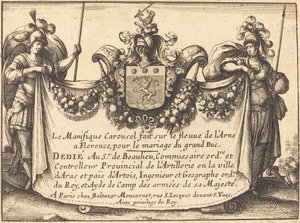 Le Manifique Carousel fait sur le fleuve de l'Arne
a Florence, pour le mariage du grand Duc.
DEDIÉ Au Sr. de Beaulieu, Commissaire ordre. et
Controlleur Provincial de l'Artillerie en la ville
d'Aras et païs d'Artois, Ingenieur et Geographe ordre.
du Roy, et Ayde de Camp des armées de sa Majesté.
A Paris chez Baltazar Moncornet, rue S. Jacques devant S. Yves,
Avec privilege du Roy.